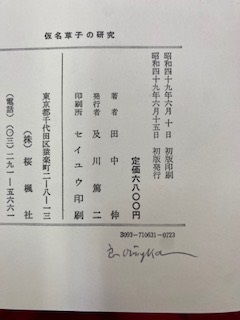 仮名草子の研究
昭和四十九年六月十日　初版印刷
昭和四十九年六月十五日　初版発行
定価六八〇〇円
著者　田中伸
発行者　及川篤二
印刷所　セイユウ印刷
東京都千代田区猿楽町二―八―一三
(株)桜楓社
(電話)(〇三)二九一―五六六一
3093-710631-0723